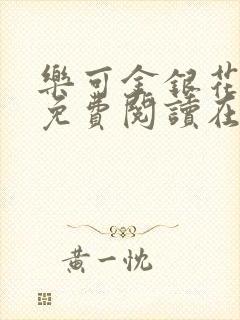 樂可金銀花
免費閱讀在
黃一忱